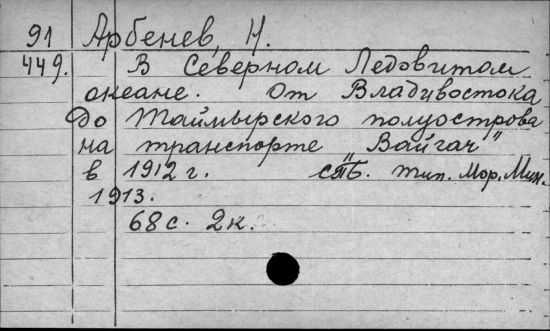 91 Арбенев, Н.
449. В Северном Ледовитом
океане. От Владивостока
до Таймырского полуострова
на транспорте "Вайгач"
в 1912 г. СПБ. тип. Мор. Мин.
1913.
68 с. 2 к.